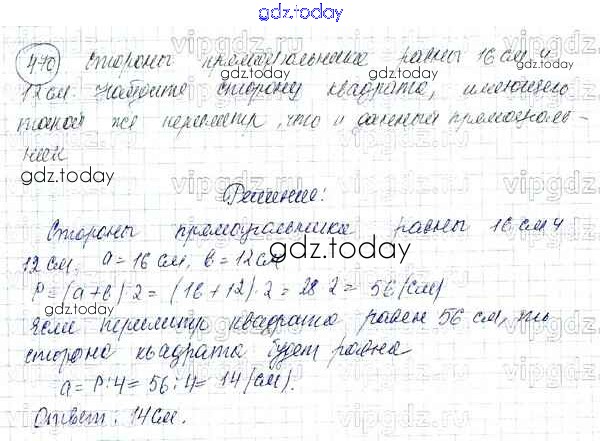 gdz.today
470 Стороны прямоугольника равны 16 см и
12 см. Найдите сторону квадрата, имеющего
такой же периметр, что и данный прямоуголь-
ник
Решение:
Стороны прямоугольника равны 16 см и
12 см. a = 16 см, b = 12 см
P = (a+b)·2 = (16+12)·2 = 28·2 = 56 (см)
Если периметр квадрата равен 56 см, то
сторона квадрата будет равна
a = P:4 = 56:4 = 14 (см).
Ответ: 14 см.